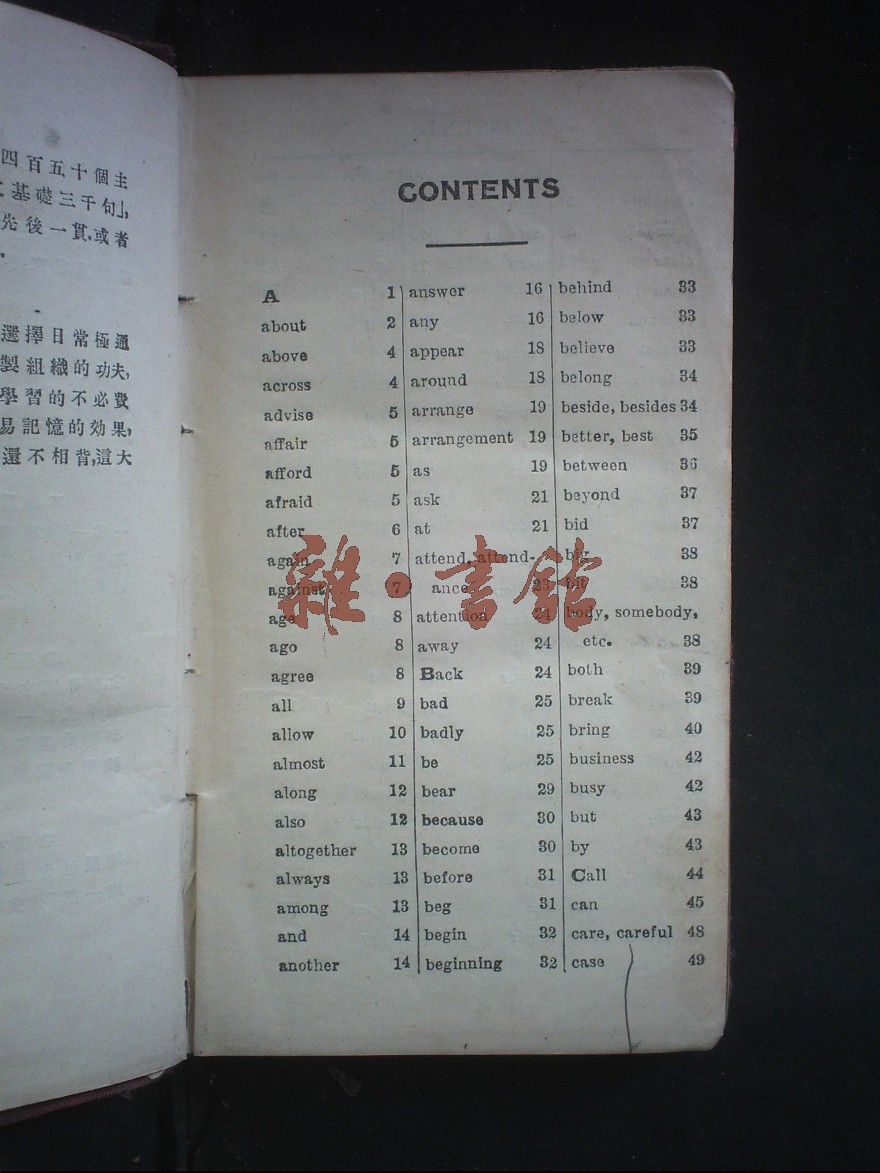 四百五十個主
基礎三千句」,
先後一貫,或者
選擇日常極通
製組織的功夫,
學習的不必費
易記憶的効果,
還不相背,這大
CONTENTS
A 1
about 2
above 4
across 4
advise 5
affair 5
afford 5
afraid 5
after 6
again 7
against 7
age 8
ago 8
agree 8
all 9
allow 10
almost 11
along 12
also 12
altogether 13
always 13
among 13
and 14
another 14
answer 16
any 16
appear 18
around 18
arrange 19
arrangement 19
as 19
ask 21
at 21
attend, attend-
ance 23
attention 24
away 24
Back 24
bad 25
badly 25
be 25
bear 29
because 30
become 30
before 31
beg 31
begin 32
beginning 32
behind 33
below 33
believe 33
belong 34
beside, besides 34
better, best 35
between 36
beyond 37
bid 37
big 38
bit 38
body, somebody,
etc. 38
both 39
break 39
bring 40
business 42
busy 42
but 43
by 43
Call 44
can 45
care, careful 48
case 49
雜·書館